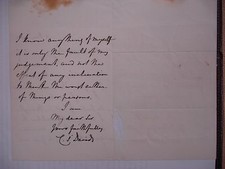 I know anything of myself
it is only the fault of my
judgement, and not the
effect of any inclination
to think the worst either
of things or persons.
I am
My dear Sir
Yours faithfully
C